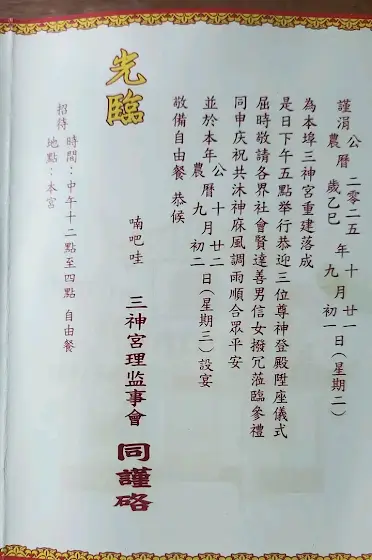 謹涓 公曆 二零二五 年 十月廿一 日(星期二)
農曆 歲乙巳 九月初一
為本埠三神宮重建落成
是日下午五點舉行恭迎三位尊神登殿陞座儀式
屆時敬請各界社會賢達善男信女撥冗蒞臨參禮
同申庆祝共沐神庥風調雨順合眾平安
並於本年 公曆 十月廿二 日(星期三)設宴
農曆 九月初二
敬備自由餐 恭候
光臨
喃吧哇 三神宮理监事會 同謹臵
招待 時間:中午十二點至四點 自由餐
地點:本宮